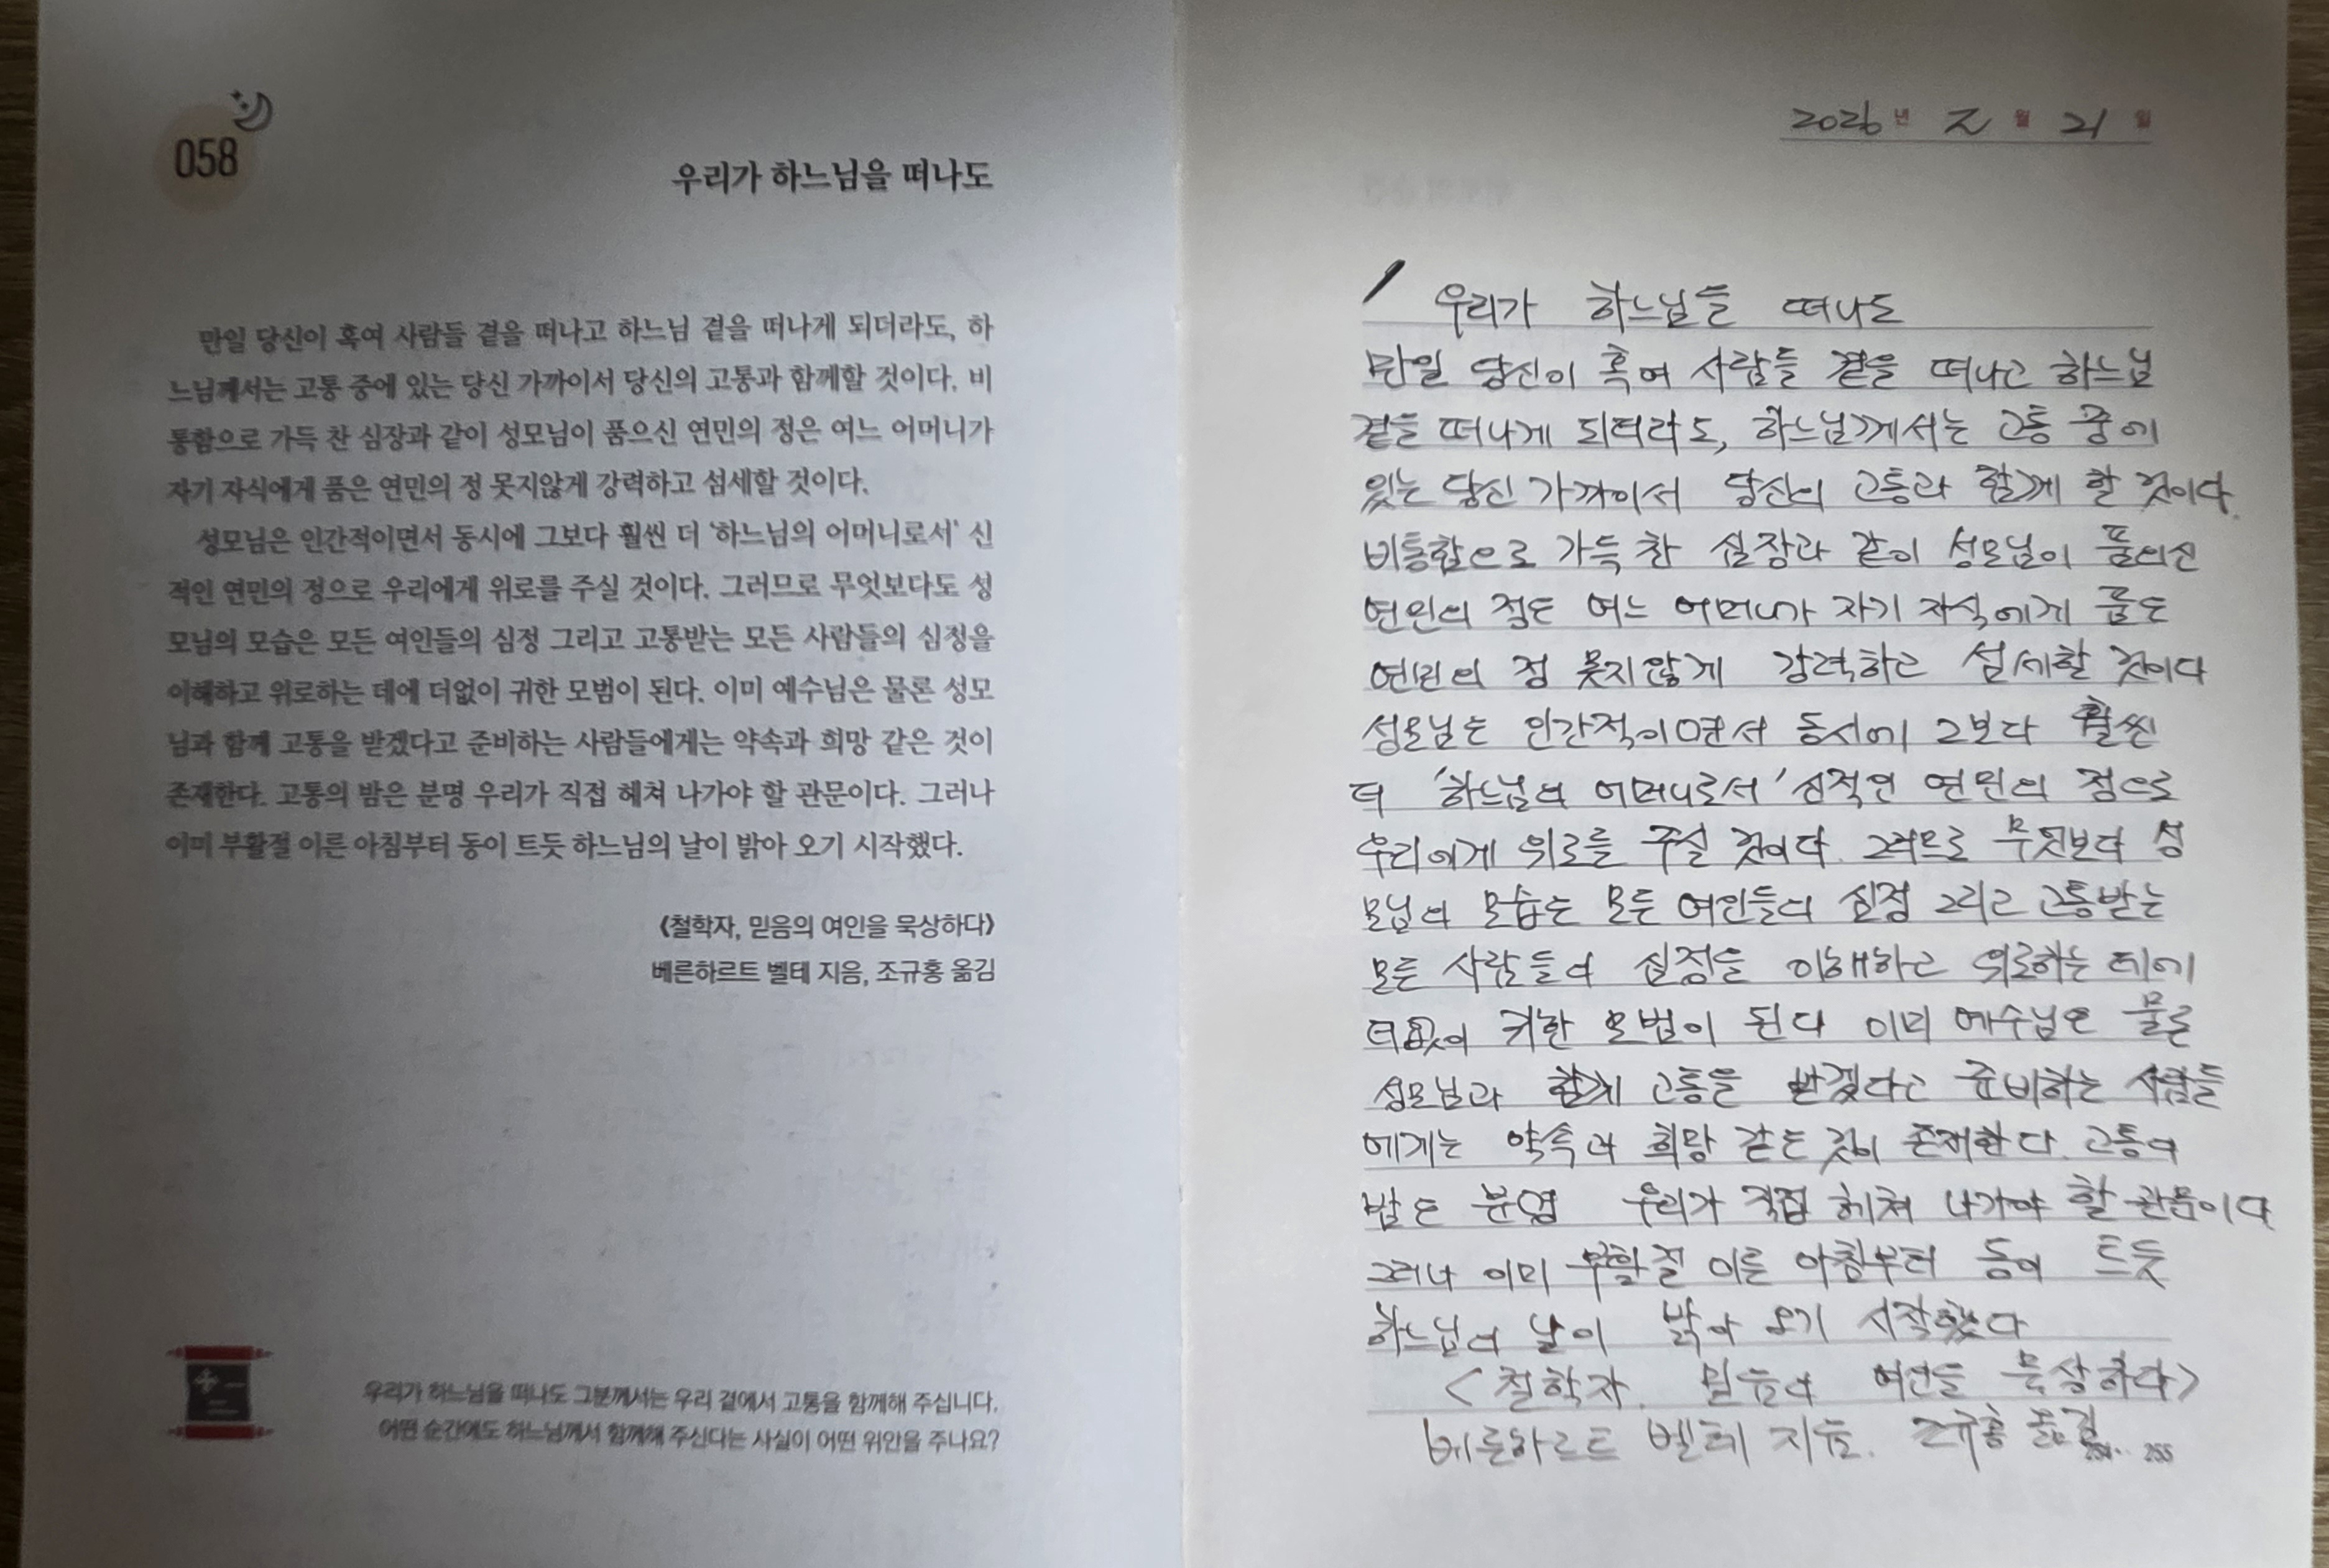 058
우리가 하느님을 떠나도
만일 당신이 혹여 사람들 곁을 떠나고 하느님 곁을 떠나게 되더라도, 하
느님께서는 고통 중에 있는 당신 가까이서 당신의 고통과 함께할 것이다. 비
통함으로 가득 찬 심장과 같이 성모님이 품으신 연민의 정은 여느 어머니가
자기 자식에게 품은 연민의 정 못지않게 강력하고 섬세할 것이다.
성모님은 인간적이면서 동시에 그보다 훨씬 더 '하느님의 어머니로서' 신
적인 연민의 정으로 우리에게 위로를 주실 것이다. 그러므로 무엇보다도 성
모님의 모습은 모든 여인들의 심정 그리고 고통받는 모든 사람들의 심정을
이해하고 위로하는 데에 더없이 귀한 모범이 된다. 이미 예수님은 물론 성모
님과 함께 고통을 받겠다고 준비하는 사람들에게는 약속과 희망 같은 것이
존재한다. 고통의 밤은 분명 우리가 직접 헤쳐 나가야 할 관문이다. 그러나
이미 부활절 이른 아침부터 동이 트듯 하느님의 날이 밝아 오기 시작했다.
《철학자, 믿음의 여인을 묵상하다》
베른하르트 벨테 지음, 조규홍 옮김
우리가 하느님을 떠나도 그분께서는 우리 곁에서 고통을 함께해 주십니다.
어떤 순간에도 하느님께서 함께해 주신다는 사실이 어떤 위안을 주나요?
2026년 7월 21일
우리가 하느님을 떠나도
만일 당신이 혹여 사람들 곁을 떠나고 하느님
곁을 떠나게 되더라도, 하느님께서는 고통 중에
있는 당신 가까이서 당신의 고통과 함께 할 것이다.
비통함으로 가득 찬 심장과 같이 성모님이 품으신
연민의 정은 여느 어머니가 자기 자식에게 품은
연민의 정 못지않게 강력하고 섬세할 것이다
성모님은 인간적이면서 동시에 그보다 훨씬
더 '하느님의 어머니로서' 신적인 연민의 정으로
우리에게 위로를 주실 것이다. 그러므로 무엇보다 성
모님의 모습은 모든 여인들의 심정 그리고 고통받는
모든 사람들의 심정을 이해하고 위로하는 데에
더없이 귀한 모범이 된다 이미 예수님은 물론
성모님과 함께 고통을 받겠다고 준비하는 사람들
에게는 약속과 희망 같은 것이 존재한다. 고통의
밤은 분명 우리가 직접 헤쳐 나가야 할 관문이다
그러나 이미 부활절 이른 아침부터 동이 트듯
하느님의 날이 밝아 오기 시작했다
<철학자. 믿음의 여인을 묵상하다>
베른하르트 벨테 지음. 조규홍 옮김
255